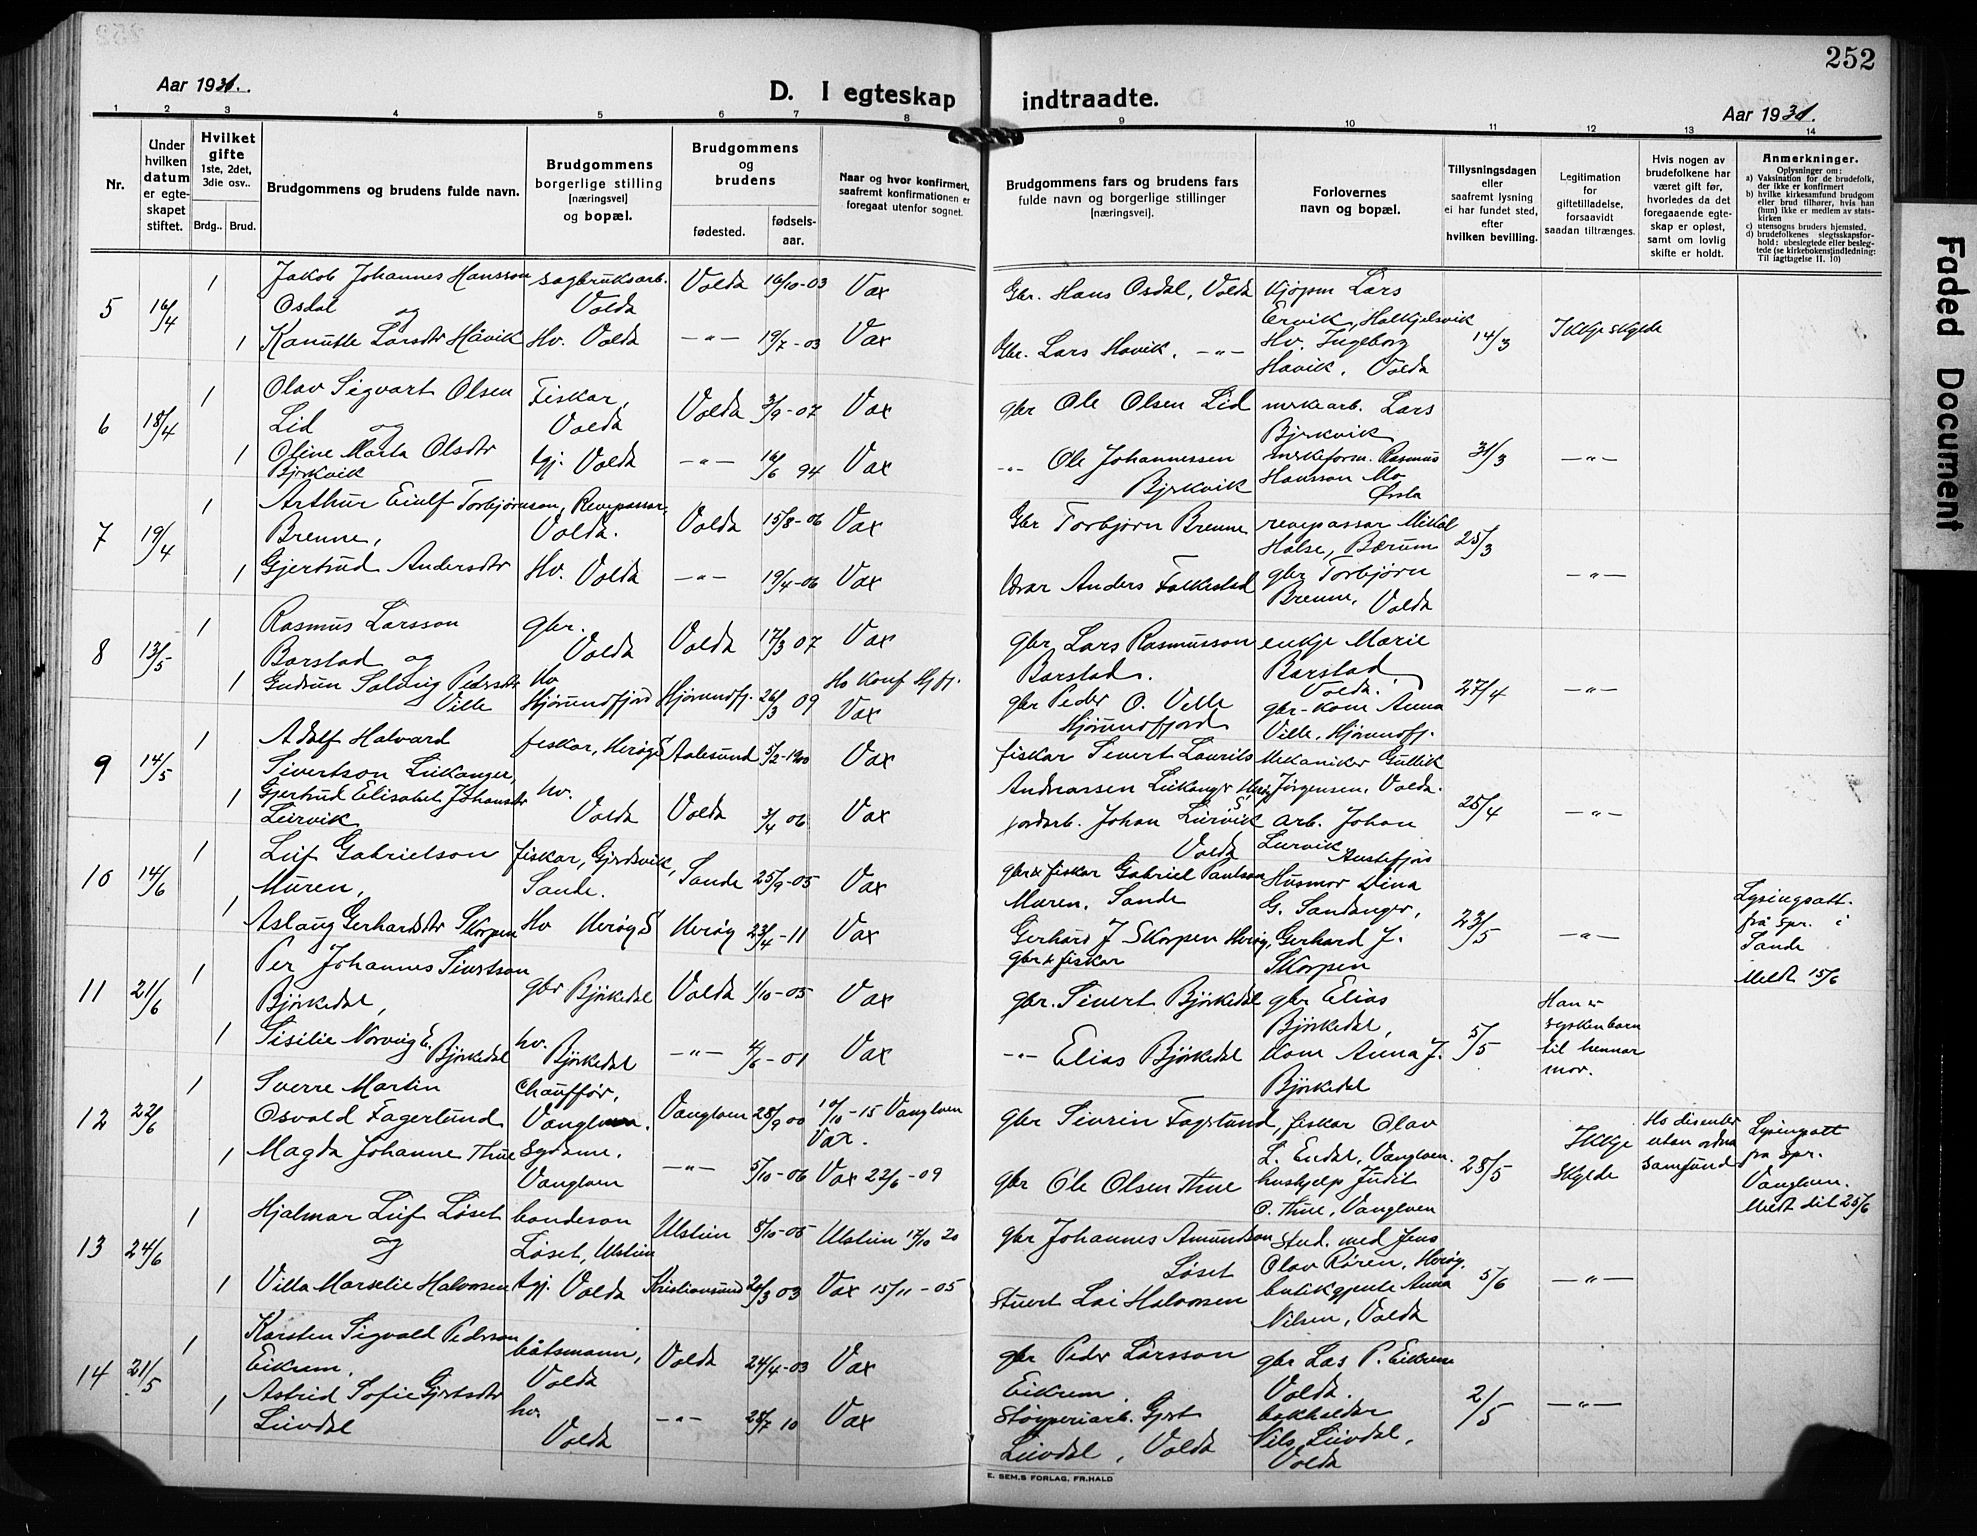 252
Aar 1931.
D. I egteskap indtraadte.
Aar 1931.
1 2 3 4 5 6 7 8 9 10 11 12 13 14
Nr.
Under hvilken datum er egteskapet stiftet.
Hvilket gifte 1ste, 2det, 3die osv..
Brdg.. Brud.
Brudgommens og brudens fulde navn.
Brudgommens borgerlige stilling [næringsvei] og bopæl.
Brudgommens og brudens
fødested.
fødselsaar.
Naar og hvor konfirmert, saafremt konfirmationen er foregaat utenfor sognet.
Brudgommens fars og brudens fars fulde navn og borgerlige stillinger [næringsvei].
Forlovernes navn og bopæl.
Tillysningsdagen eller saafremt lysning ei har fundet sted, efter hvilken bevilling.
Legitimation for giftetilladelse, forsaavidt saadan tiltrænges.
Hvis nogen av brudefolkene har været gift før, hvorledes da det foregaaende egteskap er opløst, samt om lovlig skifte er holdt.
Anmerkninger.
Oplysninger om:
a) Vaksination for de brudefolk, der ikke er konfirmert
b) hvilke kirkesamfund brudgom eller brud tilhører, hvis han (hun) ikke er medlem av statskirken
c) utensogns bruders hjemsted.
d) brudefolkenes slegtsskapsforhold: ubeslegtede eller beslegtede (se kirkebokensindledning: Til iagttagelse II. 10)
5 16/4 1 Jakob Johannes Hansson Osdal og sagbruksarb. Volda Volda 16/10-03 Vax Gbr. Hans Osdal, Volda Kjøpm Lars Ervik, Halkjelsvik
1 Kanutte Larsdtr Håvik Hv. Volda -"- 19/7-03 Vax Gbr. Lars Havik. -"- Hv. Ingeborg Håvik, Volda 14/3 Ikkje skylde
6 18/4 1 Olav Sigvart Olsen Lid og Fiskar, Volda Volda 3/9-07 Vax gbr Ole Olsen Lid Lars Bjrkvik
1 Oline Marta Olsdtr Bjrkvik tgj. Volda -"- 16/6 94 Vax -"- Ole Johannessen Bjrkvik Rasmus Hansson Mo Ørsta 31/3 -"-
7 19/4 1 Arthur Eiulf Torbjørnson, Brenne, Revepassar, Volda. Volda 15/8-06 Vax Gbr Torbjørn Brenne revepassar Mikal Halse, Bærum 25/3
1 Gjertrud Andersdtr Hv. Volda -"- 19/4-06 Vax Anders Folkestad gbr Torbjørn Brenne, Volda -"-
8 13/5 1 Rasmus Larsson Barstad og gbr. Volda Volda 17/3 07 Vax gbr Lars Rasmusson Barstad. enkje Marie Barstad Volda.
1 Gudrun Solveig Pedersdtr Ville hv Hjørundfjord Hjørundfj. 26/3 09 Ho konf Hjfj. Vax gbr Peder O. Velle Hjørundfjord gbr-kone Anna Ville, Hjørundfj. 27/4 -"-
9 14/5 1 Adolf Halvard Sivertson Leikanger, fiskar, Herøy S Aalesund 5/2-1900 Vax fiskar Sivert Laurits Andreassen Leikanger Herøy S Mekaniker Gullik Jørgensen, Volda.
1 Gjertrud Elisabet Johansdtr Leirvik hv. Volda Volda 3/4 06 Vax jordarb. Johan Leirvik Volda arb. Johan Leirvik Austefjord 25/4 -"-
10 14/6 1 Leif Gabrielson Muren, fiskar, Gjerdsvik, Sande. Sande 25/9-05 Vax gbr & fiskar Gabriel Paulson Muren, Sande Husmor Dina G. Sandanger,
1 Aslaug Gerhardsdtr Skorpen Hv Herøy S Herøy 23/4-11 Vax Gerhard J Skorpen Herøy, gbr & fiskar Gerhard J. Skorpen 23/5 -"- Lysingsatt. frå spr. i Sande Meldt 15/6
11 21/6 1 Per Johannes Sivertson Bjørkedal, gbr Bjørkedal Volda 1/10-05 Vax gbr. Sivert Bjørkedal gbr Elias Bjørkedal,
1 Sisilie Norveig E. Bjørkedal hv. Bjørkedal -"- 4/6-01 Vax -"- Elias Bjørkedal Kone Anna J. Bjørkedal 5/5 Han er syskenbarn til hennar mor.
12 22/6 1 Sverre Martin Osvald Fagerlund Chauffør, Vanglven. Vanglven 28/9 00 10/10-15 Vanglven Vax. gbr Sivrin Fagerlund, fiskar Olav L. Endal, Vanglven.
1 Magda Johanne Thue Sydame. Vanglven -"- 5/10-06 Vax 22/6-09 gbr Ole Olsen Thue hushjelp Judit O. Thue, Vanglven 28/5 Ikkje skylde Ho disenter utan ordna samfund Lysingsatt fra spr. Vanglven. Meldt dit 25/6
13 24/6 1 Hjalmar Leif Løset og bondeson Løset, Ulstein Ulstein 8/10-05 Ulstein 17/10 20 gbr Johannes Amundson Løset Stud. med Jens Olav Røren, Herøy.
1 Villa Marselie Halvorsen tgj. Volda Kristiansund 20/3 03 Vax 15/11-05 Stuert Lai Halvorsen butikgjente Anna Nilsen, Volda 5/6 -"-
14 21/5 1 Karsten Sigvald Pederson Eikrem, båtsmann, Volda Volda 24/4-03 Vax gbr Peder Larsson Eikrem. gbr Las P. Eikrem Volda.
1 Astrid Sofie Gjertsdtr Leivdal hv. Volda -"- 28/7 10 Vax Støyperiarb. Gjert Leivdal, Volda bokhaldar Nils Leivdal, Volda 2/5 -"-
E. SEM.S FORLAG, FR.HALD
Faded Document